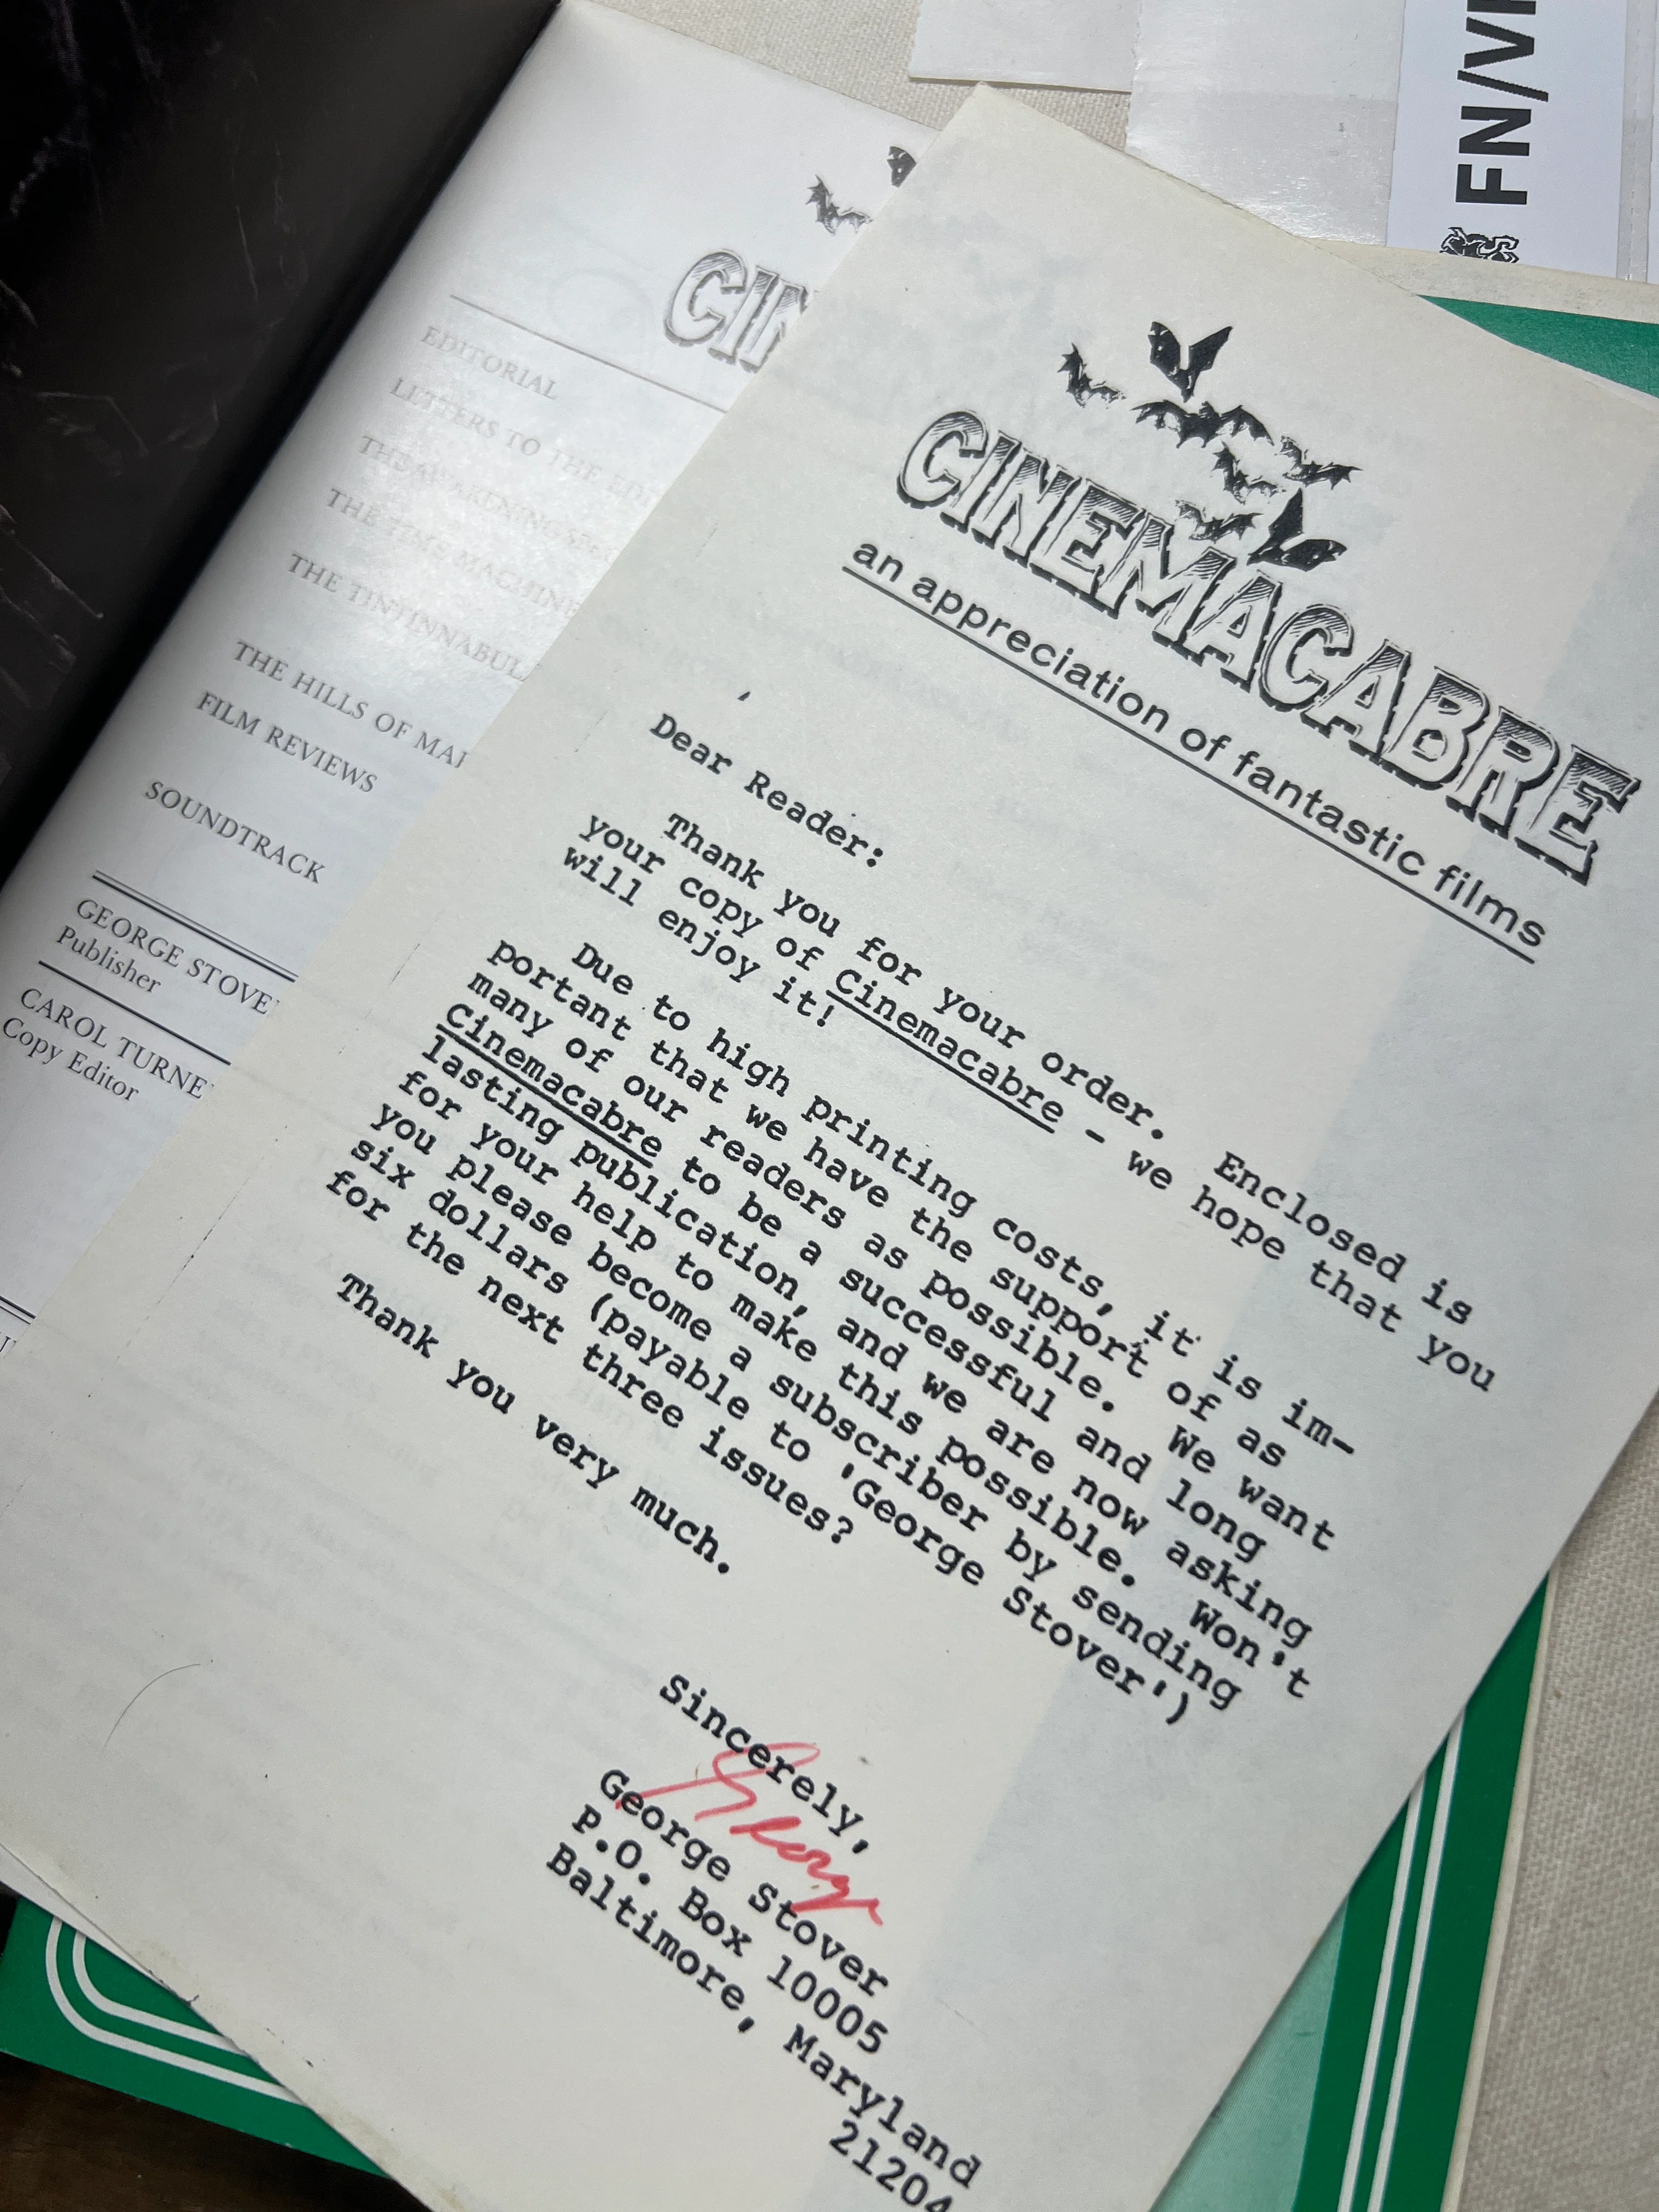 FN/V
CIN
EDITORIAL
LETTERS TO THE EDIT
THE AWAKENING
THE TIME MACHINE
THE TINTINNABUL
THE HILLS OF MAR
FILM REVIEWS
SOUNDTRACK
GEORGE STOVE
Publisher
CAROL TURNE
Copy Editor
CINEMACABRE
an appreciation of fantastic films
Dear Reader:
Thank you for your order. Enclosed is
your copy of Cinemacabre - we hope that you
will enjoy it!
Due to high printing costs, it is im-
portant that we have the support of as
many of our readers as possible. We want
Cinemacabre to be a successful and long
lasting publication, and we are now asking
for your help to make this possible. Won't
you please become a subscriber by sending
six dollars (payable to 'George Stover')
for the next three issues?
Thank you very much.
Sincerely,
George
George Stover
P.O. Box 10005
Baltimore, Maryland
21204